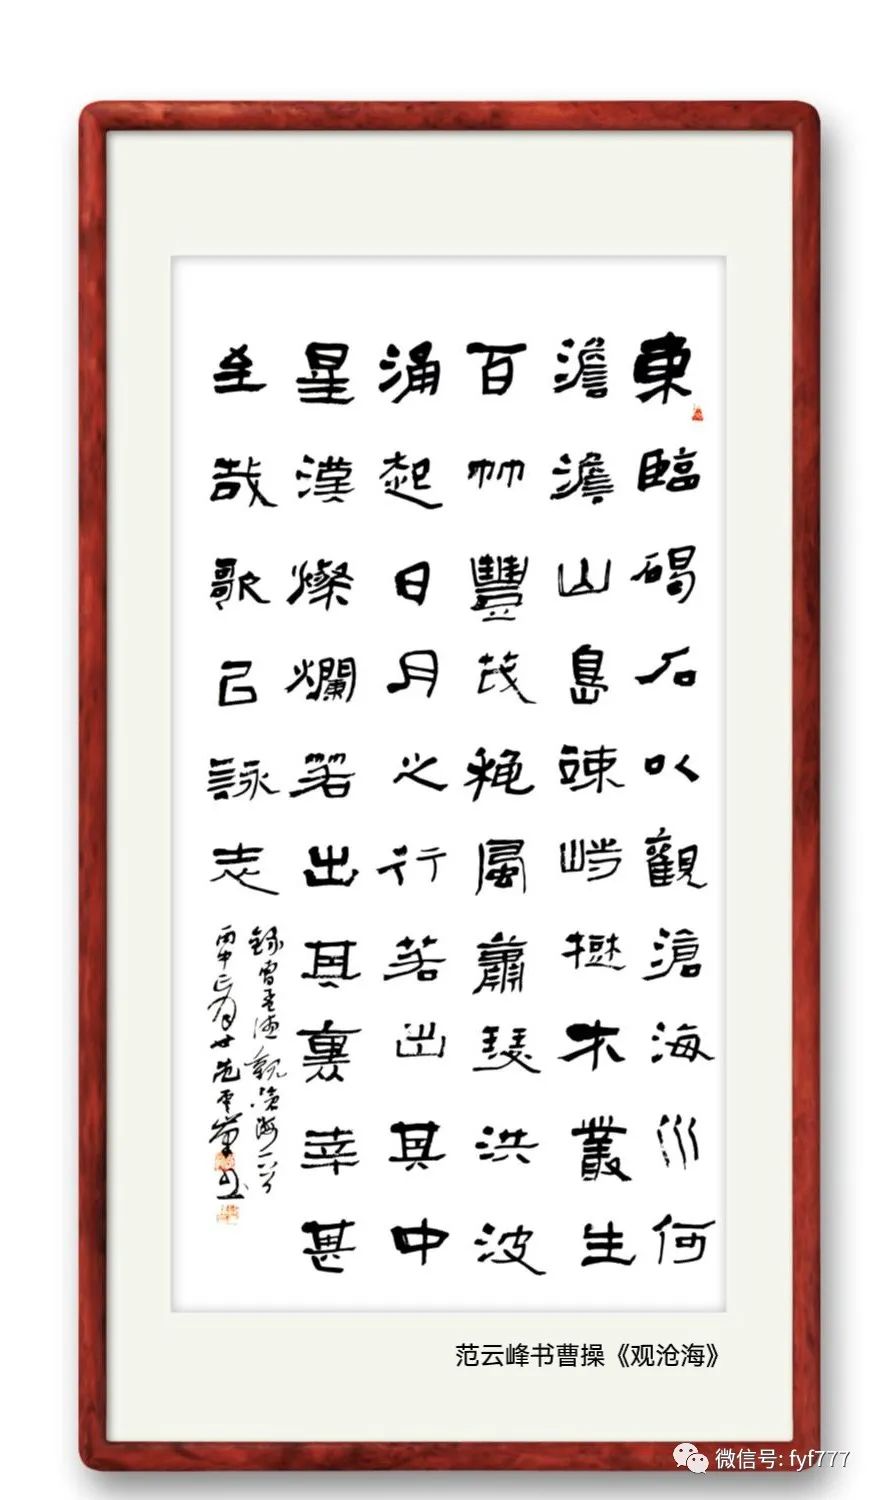 東臨碣石以觀滄海水何
澹澹山島竦峙樹木叢生
百艸豐茂穐風蕭瑟洪波
涌起日月之行若出其中
星漢燦爛若出其裏幸甚
至哉歌以詠志
錄曹孟德觀滄海一首
丙申正月廿范雲峰書
范云峰书曹操《观沧海》
微信号: fyf777